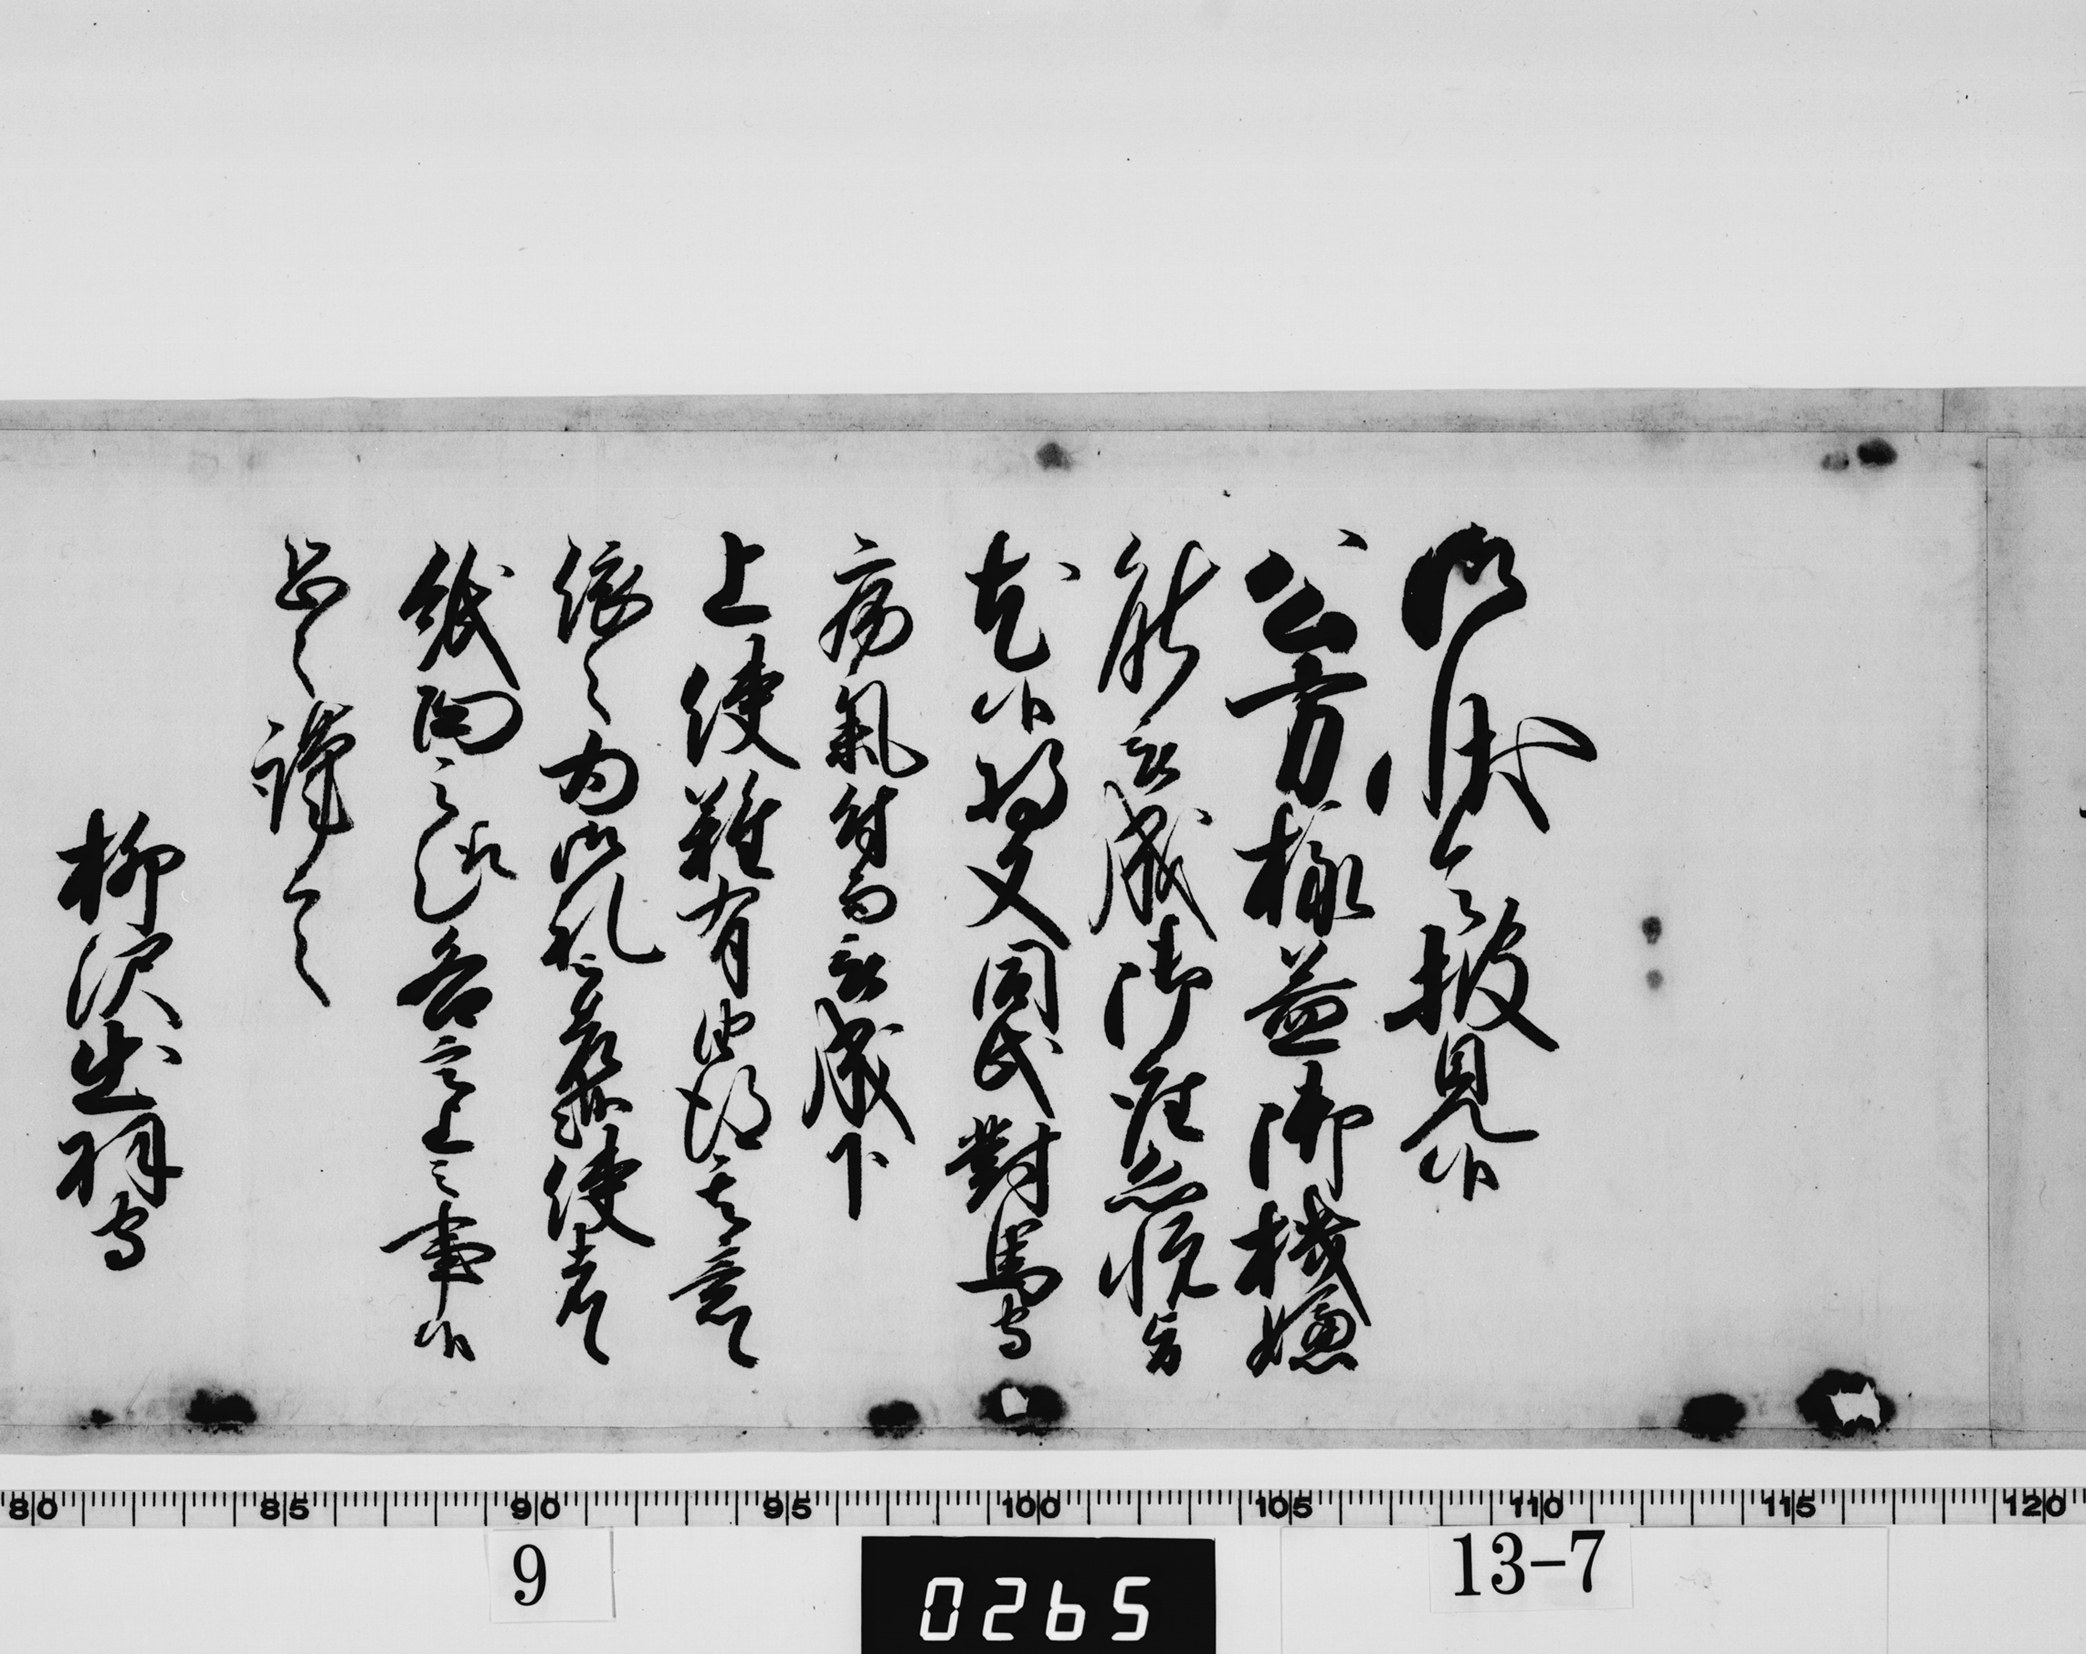 御状令披見候
公方様益御機嫌
能被成御座恐悦旨
尤候将又同氏對馬守
病氣付而被成下
上使難有由得其意候
依之為御礼被差越使者候
紙面之趣各言上之事候
恐々謹言
柳沢出羽守
80 85 90 95 100 105 110 115 120
9
0265
13-7